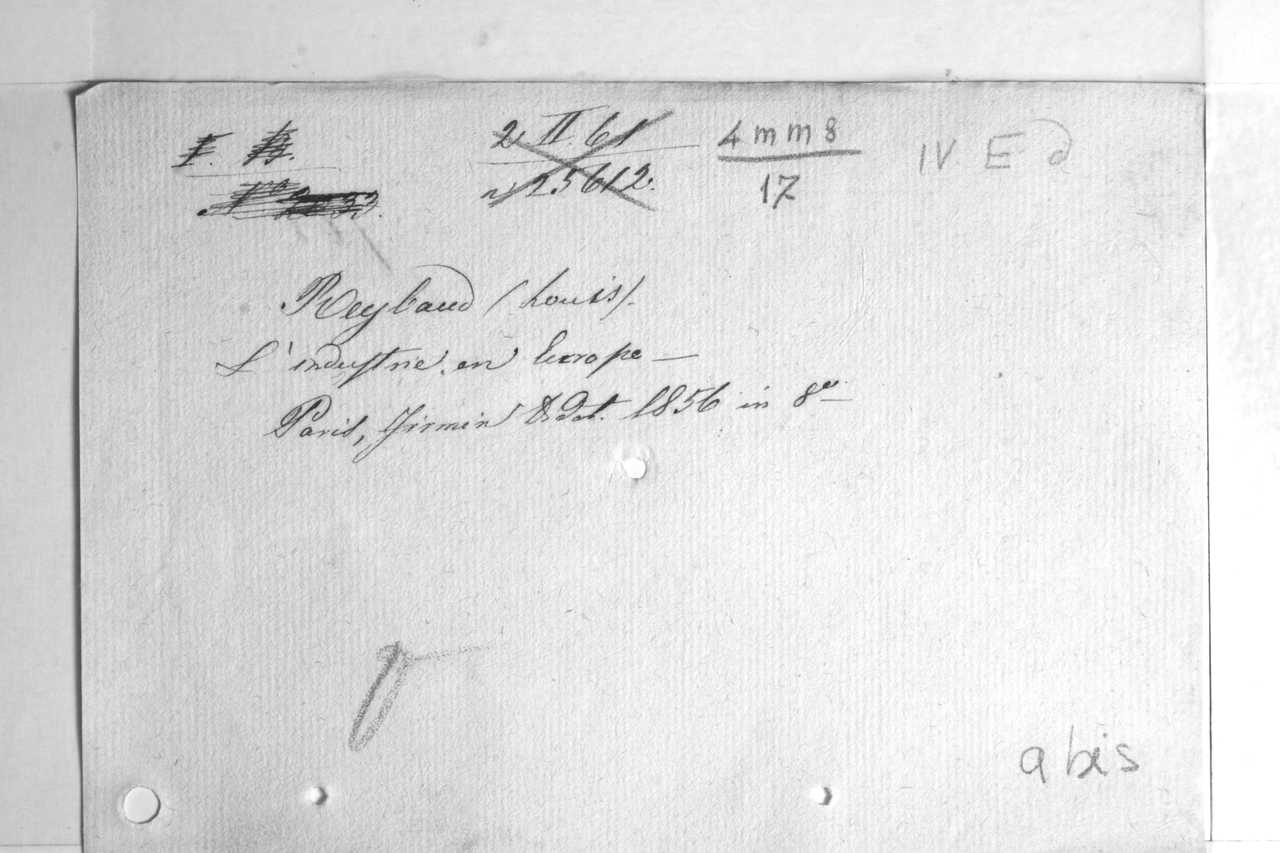 2 II. 61 4 m m 8 IV E d
n° 25612. 17
Reybaud (Louis).
L'industrie en Europe —
Paris, Firmin Didot. 1856 in 8°
a bis